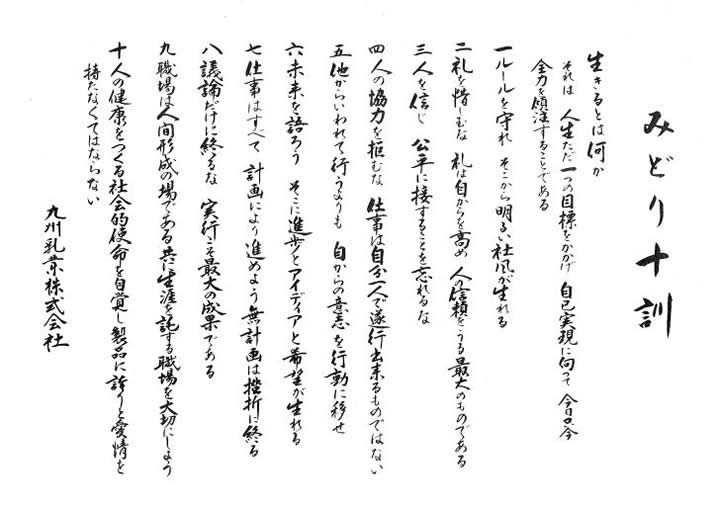 みどり十訓
生きるとは何か
それは 人生ただ一つの目標をかかげ 自己実現に向って 今日の今
全力を傾注することである
一 ルールを守れ そこから明るい社風が生れる
二 礼を惜しむな 礼は自からを高め 人の信頼をうる最大のものである
三 人を信じ 公平に接することを忘れるな
四 人の協力を拒むな 仕事は自分一人で遂行出来るものではない
五 他からいわれて行うよりも 自からの意志を行動に移せ
六 未来を語ろう そこに進歩とアイディアと希望が生れる
七 仕事はすべて 計画により進めよう 無計画は挫折に終る
八 議論だけに終るな 実行こそ最大の成果である
九 職場は人間形成の場である 共に生涯を託する職場を大切にしよう
十 人の健康をつくる社会的使命を自覚し 製品に誇りと愛情を
持たなくてはならない
九州乳業株式会社